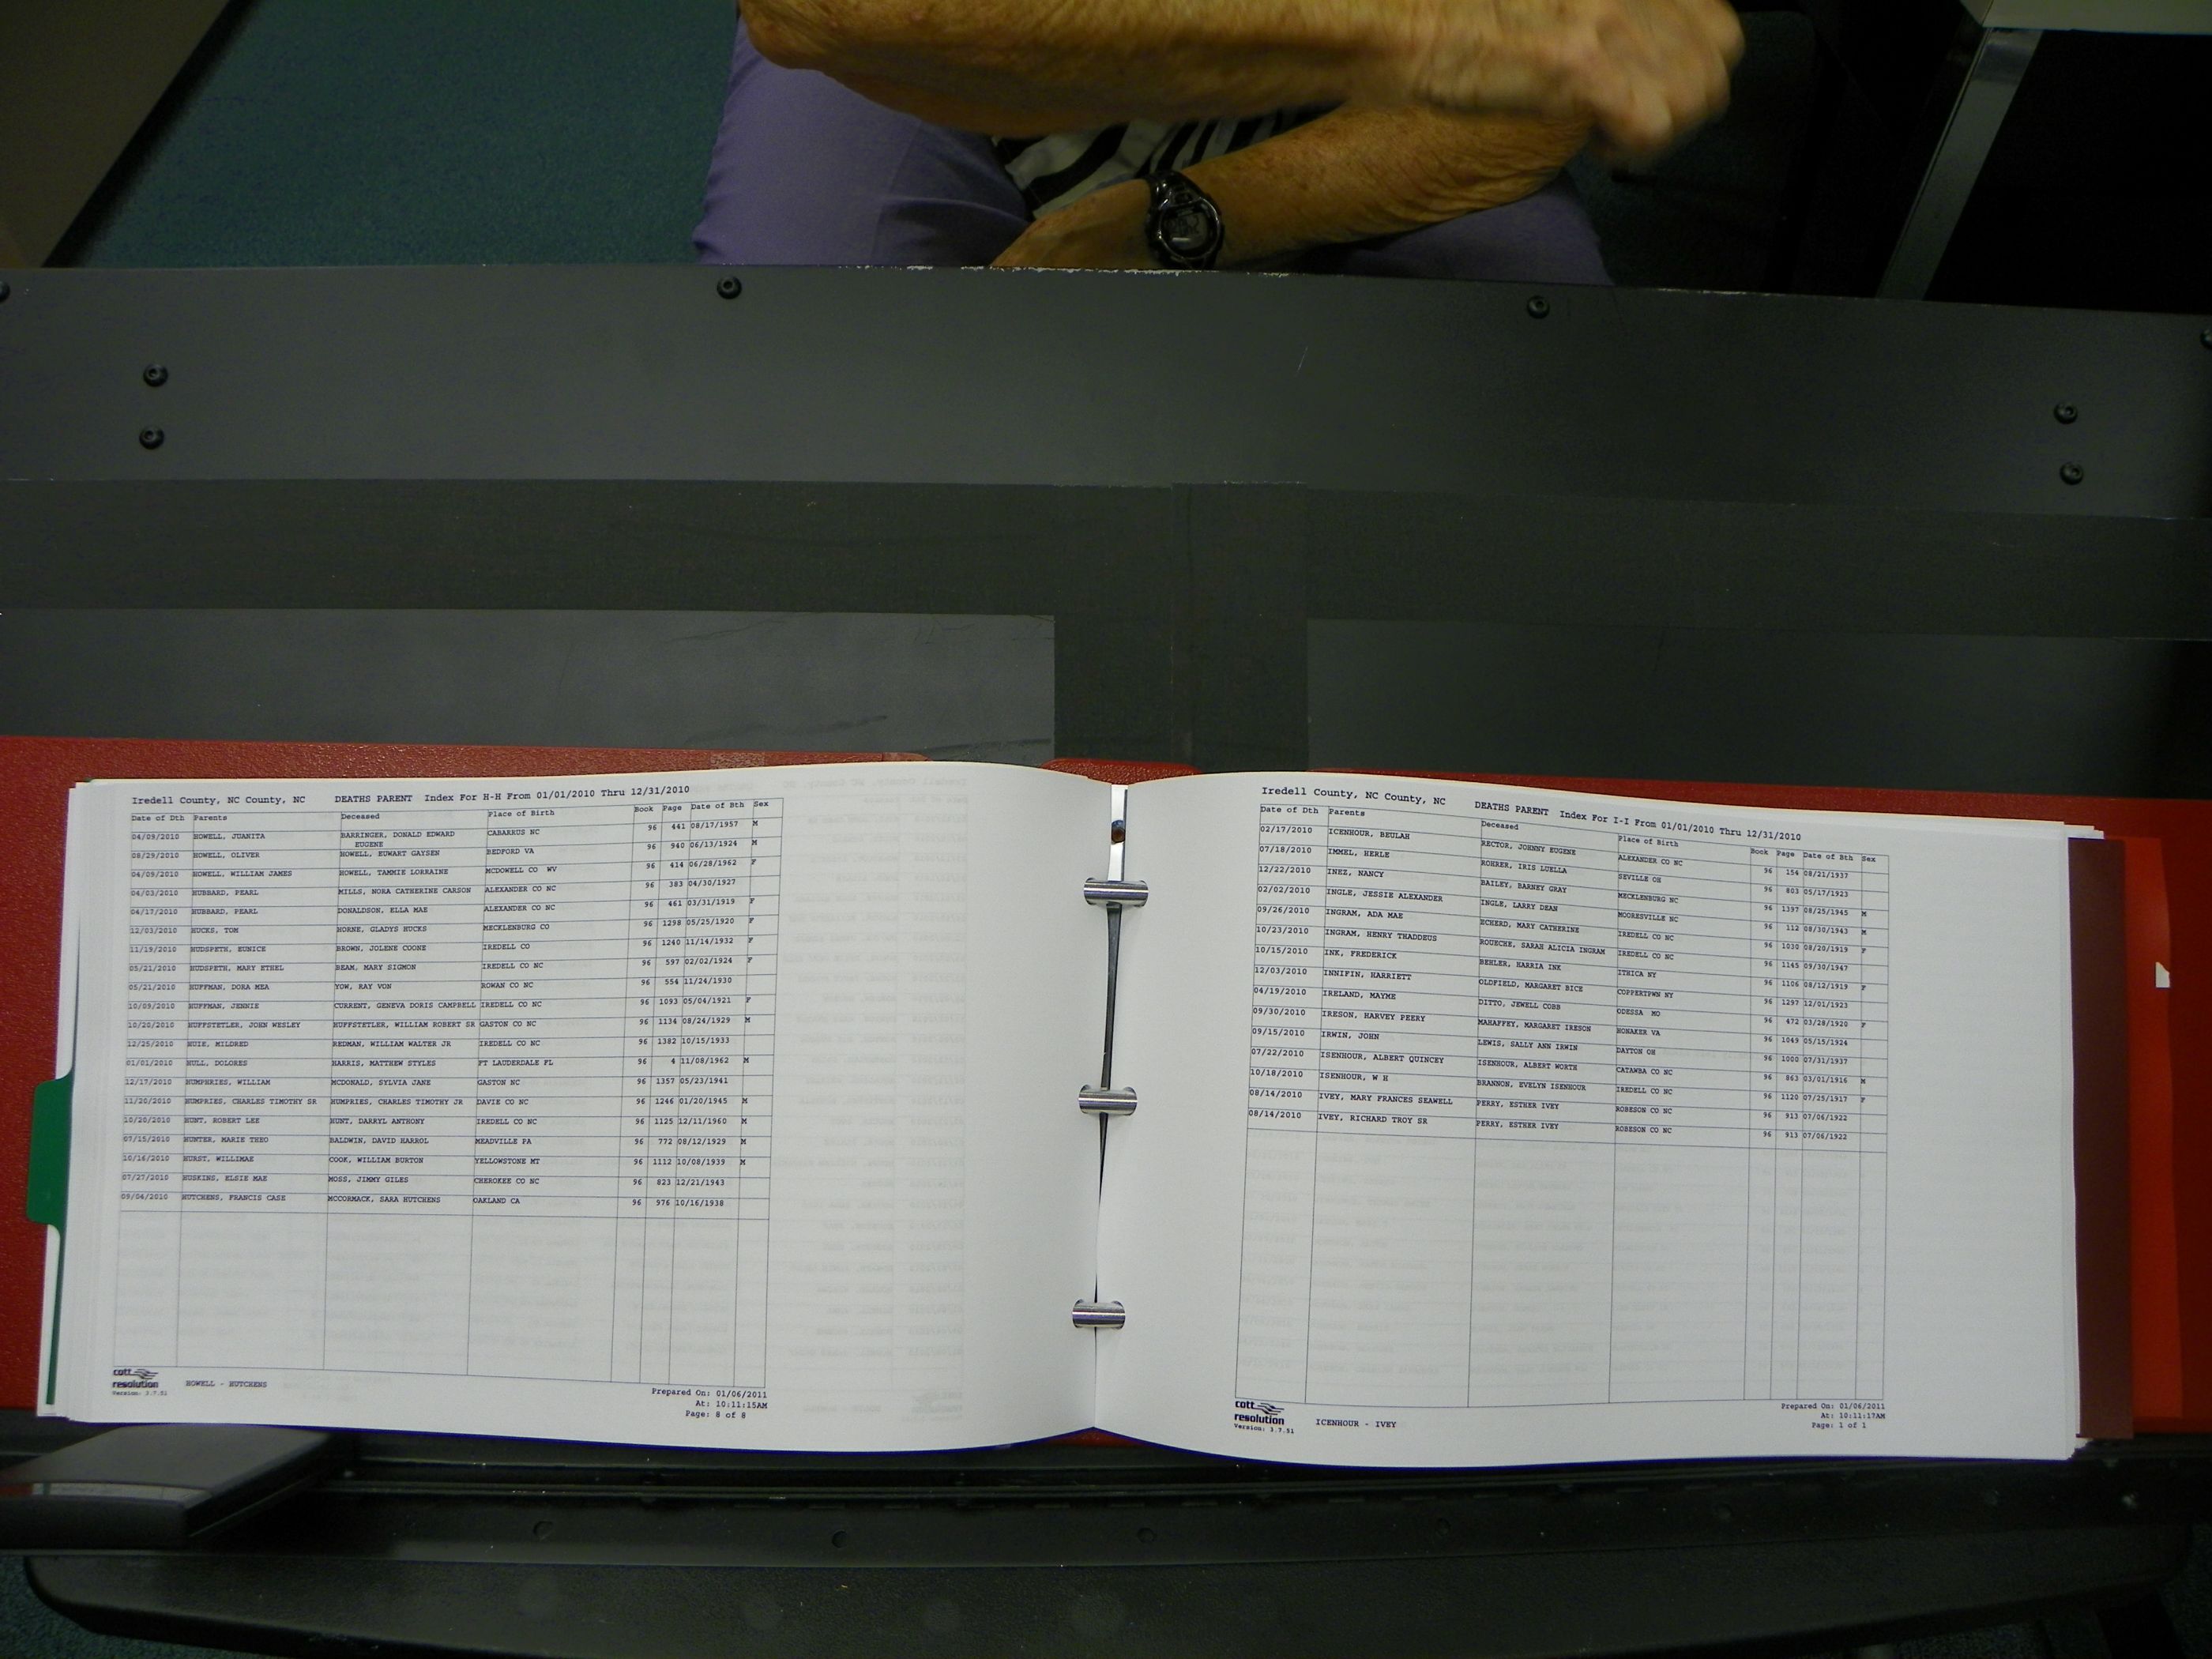 Iredell County, NC County, NC DEATHS PARENT Index For H-H From 01/01/2010 Thru 12/31/2010
Date of Dth Parents Deceased Place of Birth Book Page Date of Bth Sex
04/09/2010 HOWELL, JUANITA BARRINGER, DONALD EDWARD CABARRUS NC 96 441 08/17/1957 M
EUGENE
08/29/2010 HOWELL, OLIVER HOWELL, EUWART GAYSEN BEDFORD VA 96 940 06/13/1924 M
04/09/2010 HOWELL, WILLIAM JAMES HOWELL, TAMMIE LORRAINE MCDOWELL CO WV 96 414 06/28/1962 F
04/03/2010 HUBBARD, PEARL MILLS, NORA CATHERINE CARSON ALEXANDER CO NC 96 383 04/30/1927
04/17/2010 HUBBARD, PEARL DONALDSON, ELLA MAE ALEXANDER CO NC 96 461 03/31/1919 F
12/03/2010 HUCKS, TOM HORNE, GLADYS HUCKS MECKLENBURG CO 96 1298 05/25/1920 F
11/19/2010 HUDSPETH, EUNICE BROWN, JOLENE COONE IREDELL CO 96 1240 11/14/1932 F
05/21/2010 HUDSPETH, MARY ETHEL BEAM, MARY SIGMON IREDELL CO NC 96 597 02/02/1924 F
05/21/2010 HUFFMAN, DORA MEA YOW, RAY VON ROWAN CO NC 96 554 11/24/1930
10/09/2010 HUFFMAN, JENNIE CURRENT, GENEVA DORIS CAMPBELL IREDELL CO NC 96 1093 05/04/1921 F
10/20/2010 HUFFSTETLER, JOHN WESLEY HUFFSTETLER, WILLIAM ROBERT SR GASTON CO NC 96 1134 08/24/1929 M
12/25/2010 HUIE, MILDRED REDMAN, WILLIAM WALTER JR IREDELL CO NC 96 1382 10/15/1933
01/01/2010 HULL, DOLORES HARRIS, MATTHEW STYLES FT LAUDERDALE FL 96 4 11/08/1962 M
12/17/2010 HUMPHRIES, WILLIAM MCDONALD, SYLVIA JANE GASTON NC 96 1357 05/23/1941
11/20/2010 HUMPRIES, CHARLES TIMOTHY SR HUMPRIES, CHARLES TIMOTHY JR DAVIE CO NC 96 1246 01/20/1945 M
10/20/2010 HUNT, ROBERT LEE HUNT, DARRYL ANTHONY IREDELL CO NC 96 1125 12/11/1960 M
07/15/2010 HUNTER, MARIE THEO BALDWIN, DAVID HARROL MEADVILLE PA 96 772 08/12/1929 M
10/16/2010 HURST, WILLIMAE COOK, WILLIAM BURTON YELLOWSTONE MT 96 1112 10/08/1939 M
07/27/2010 HUSKINS, ELSIE MAE MOSS, JIMMY GILES CHEROKEE CO NC 96 823 12/21/1943
09/04/2010 HUTCHENS, FRANCIS CASE MCCORMACK, SARA HUTCHENS OAKLAND CA 96 976 10/16/1938
cott
resolution
Version: 3.7.51
HOWELL - HUTCHENS
Prepared On: 01/06/2011
At: 10:11:15AM
Page: 8 of 8
Iredell County, NC County, NC DEATHS PARENT Index For I-I From 01/01/2010 Thru 12/31/2010
Date of Dth Parents Deceased Place of Birth Book Page Date of Bth Sex
02/17/2010 ICENHOUR, BEULAH RECTOR, JOHNNY EUGENE ALEXANDER CO NC 96 154 08/21/1937
07/18/2010 IMMEL, HERLE ROHRER, IRIS LUELLA SEVILLE OH 96 803 05/17/1923
12/22/2010 INEZ, NANCY BAILEY, BARNEY GRAY MECKLENBURG NC 96 1397 08/25/1945 M
02/02/2010 INGLE, JESSIE ALEXANDER INGLE, LARRY DEAN MOORESVILLE NC 96 112 08/30/1943 M
09/26/2010 INGRAM, ADA MAE ECHERD, MARY CATHERINE IREDELL CO NC 96 1030 08/20/1919 F
10/23/2010 INGRAM, HENRY THADDEUS ROUECHE, SARAH ALICIA INGRAM IREDELL CO NC 96 1145 09/30/1947
10/15/2010 INK, FREDERICK BEHLER, HARRIA INK ITHICA NY 96 1106 08/12/1919 F
12/03/2010 INNIFIN, HARRIETT OLDFIELD, MARGARET BICE COPPERTPWN NY 96 1297 12/01/1923
04/19/2010 IRELAND, MAYME DITTO, JEWELL COBB ODESSA MO 96 472 03/28/1920 F
09/30/2010 IRESON, HARVEY PEERY MAHAFFEY, MARGARET IRESON HONAKER VA 96 1049 05/15/1924
09/15/2010 IRWIN, JOHN LEWIS, SALLY ANN IRWIN DAYTON OH 96 1000 07/31/1937
07/22/2010 ISENHOUR, ALBERT QUINCEY ISENHOUR, ALBERT WORTH CATAWBA CO NC 96 863 03/01/1916 M
10/18/2010 ISENHOUR, W H BRANNON, EVELYN ISENHOUR IREDELL CO NC 96 1120 07/25/1917 F
08/14/2010 IVEY, MARY FRANCES SEAWELL PERRY, ESTHER IVEY ROBESON CO NC 96 913 07/06/1922
08/14/2010 IVEY, RICHARD TROY SR PERRY, ESTHER IVEY ROBESON CO NC 96 913 07/06/1922
cott
resolution
Version: 3.7.51
ICENHOUR - IVEY
Prepared On: 01/06/2011
At: 10:11:17AM
Page: 1 of 1